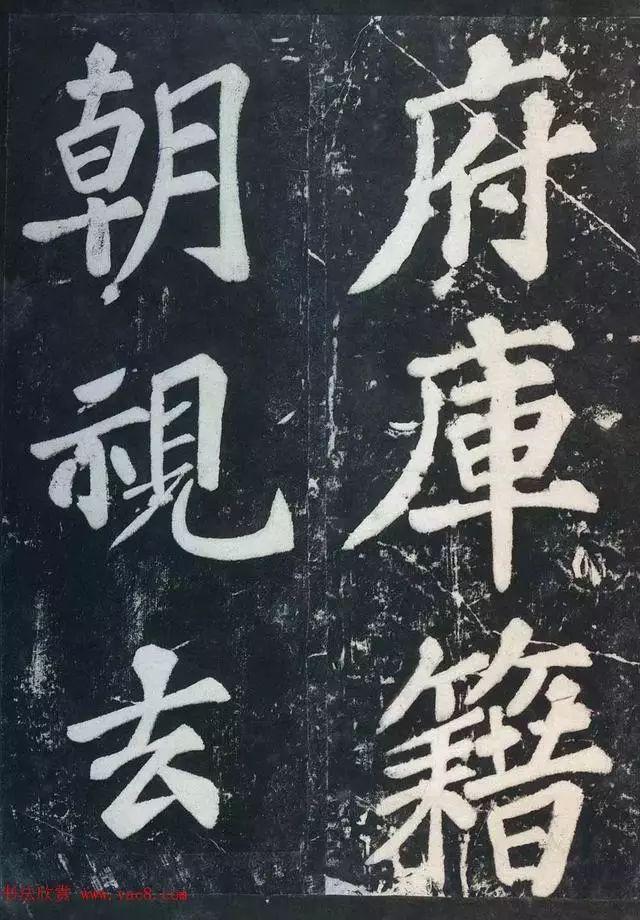 府庫籍
朝視去
书法欣赏 www.yac8.com